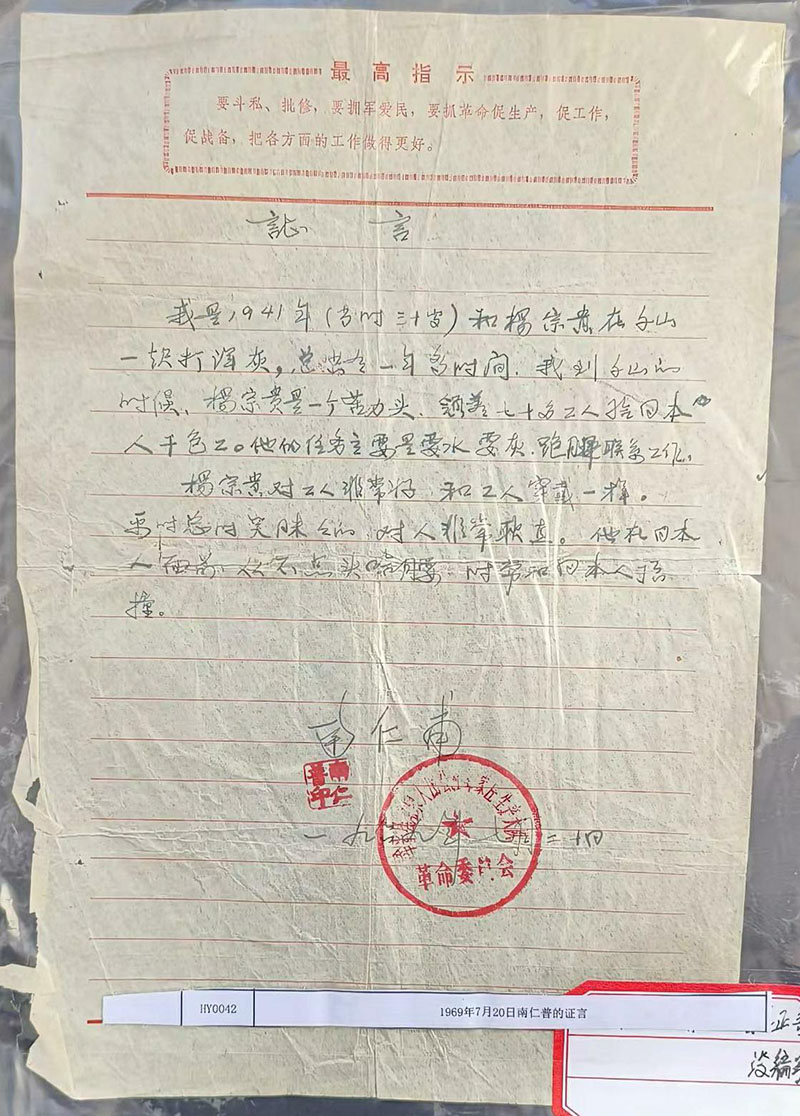 最高指示
要斗私、批修，要拥军爱民，要抓革命促生产，促工作，
促战备，把各方面的工作做得更好。
証言
我是1941年（当时三十岁）和楊宗贵在
一起打洋灰，一年多时间．我到的
时候、楊宗贵是一个苦力头．领着七十多工人给日本
人干包工。他的任务主要是要水要灰．跑腿联系工作．
楊宗贵对工人非常好．和工人穿戴一样。
平时总时笑眯的．对人非常耿直。他在日本
人面前，从不点头哈腰．时常和日本人顶
撞。
南仁甫
南仁普印
革命委员会
一九六九年七月二十日
HY0042
1969年7月20日南仁普的证言
没编